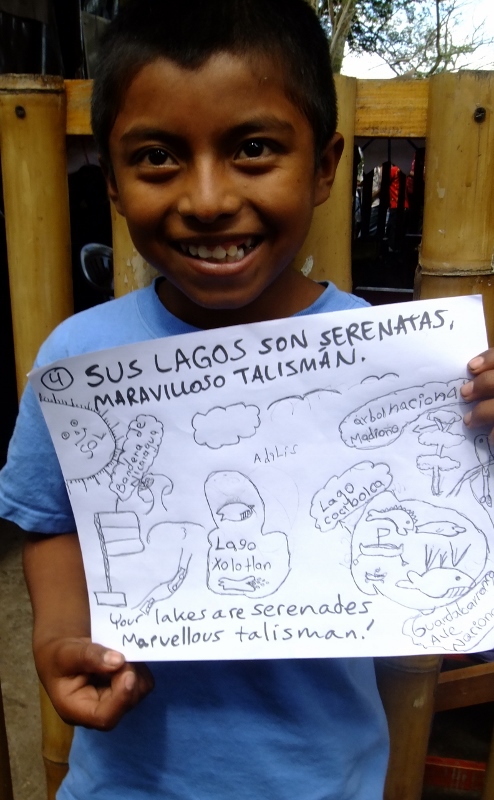 ④ SUS LAGOS SON SERENATAS,
MARAVILLOSO TALISMÁN.
SOL
Bandera de
Nicaragua
Adilis
árbol nacional
Madroño
Lago
Xolotlan
Lago
cocibolca
Guardabarranco
Ave
Nacional
Your lakes are serenades
Marvellous talisman!